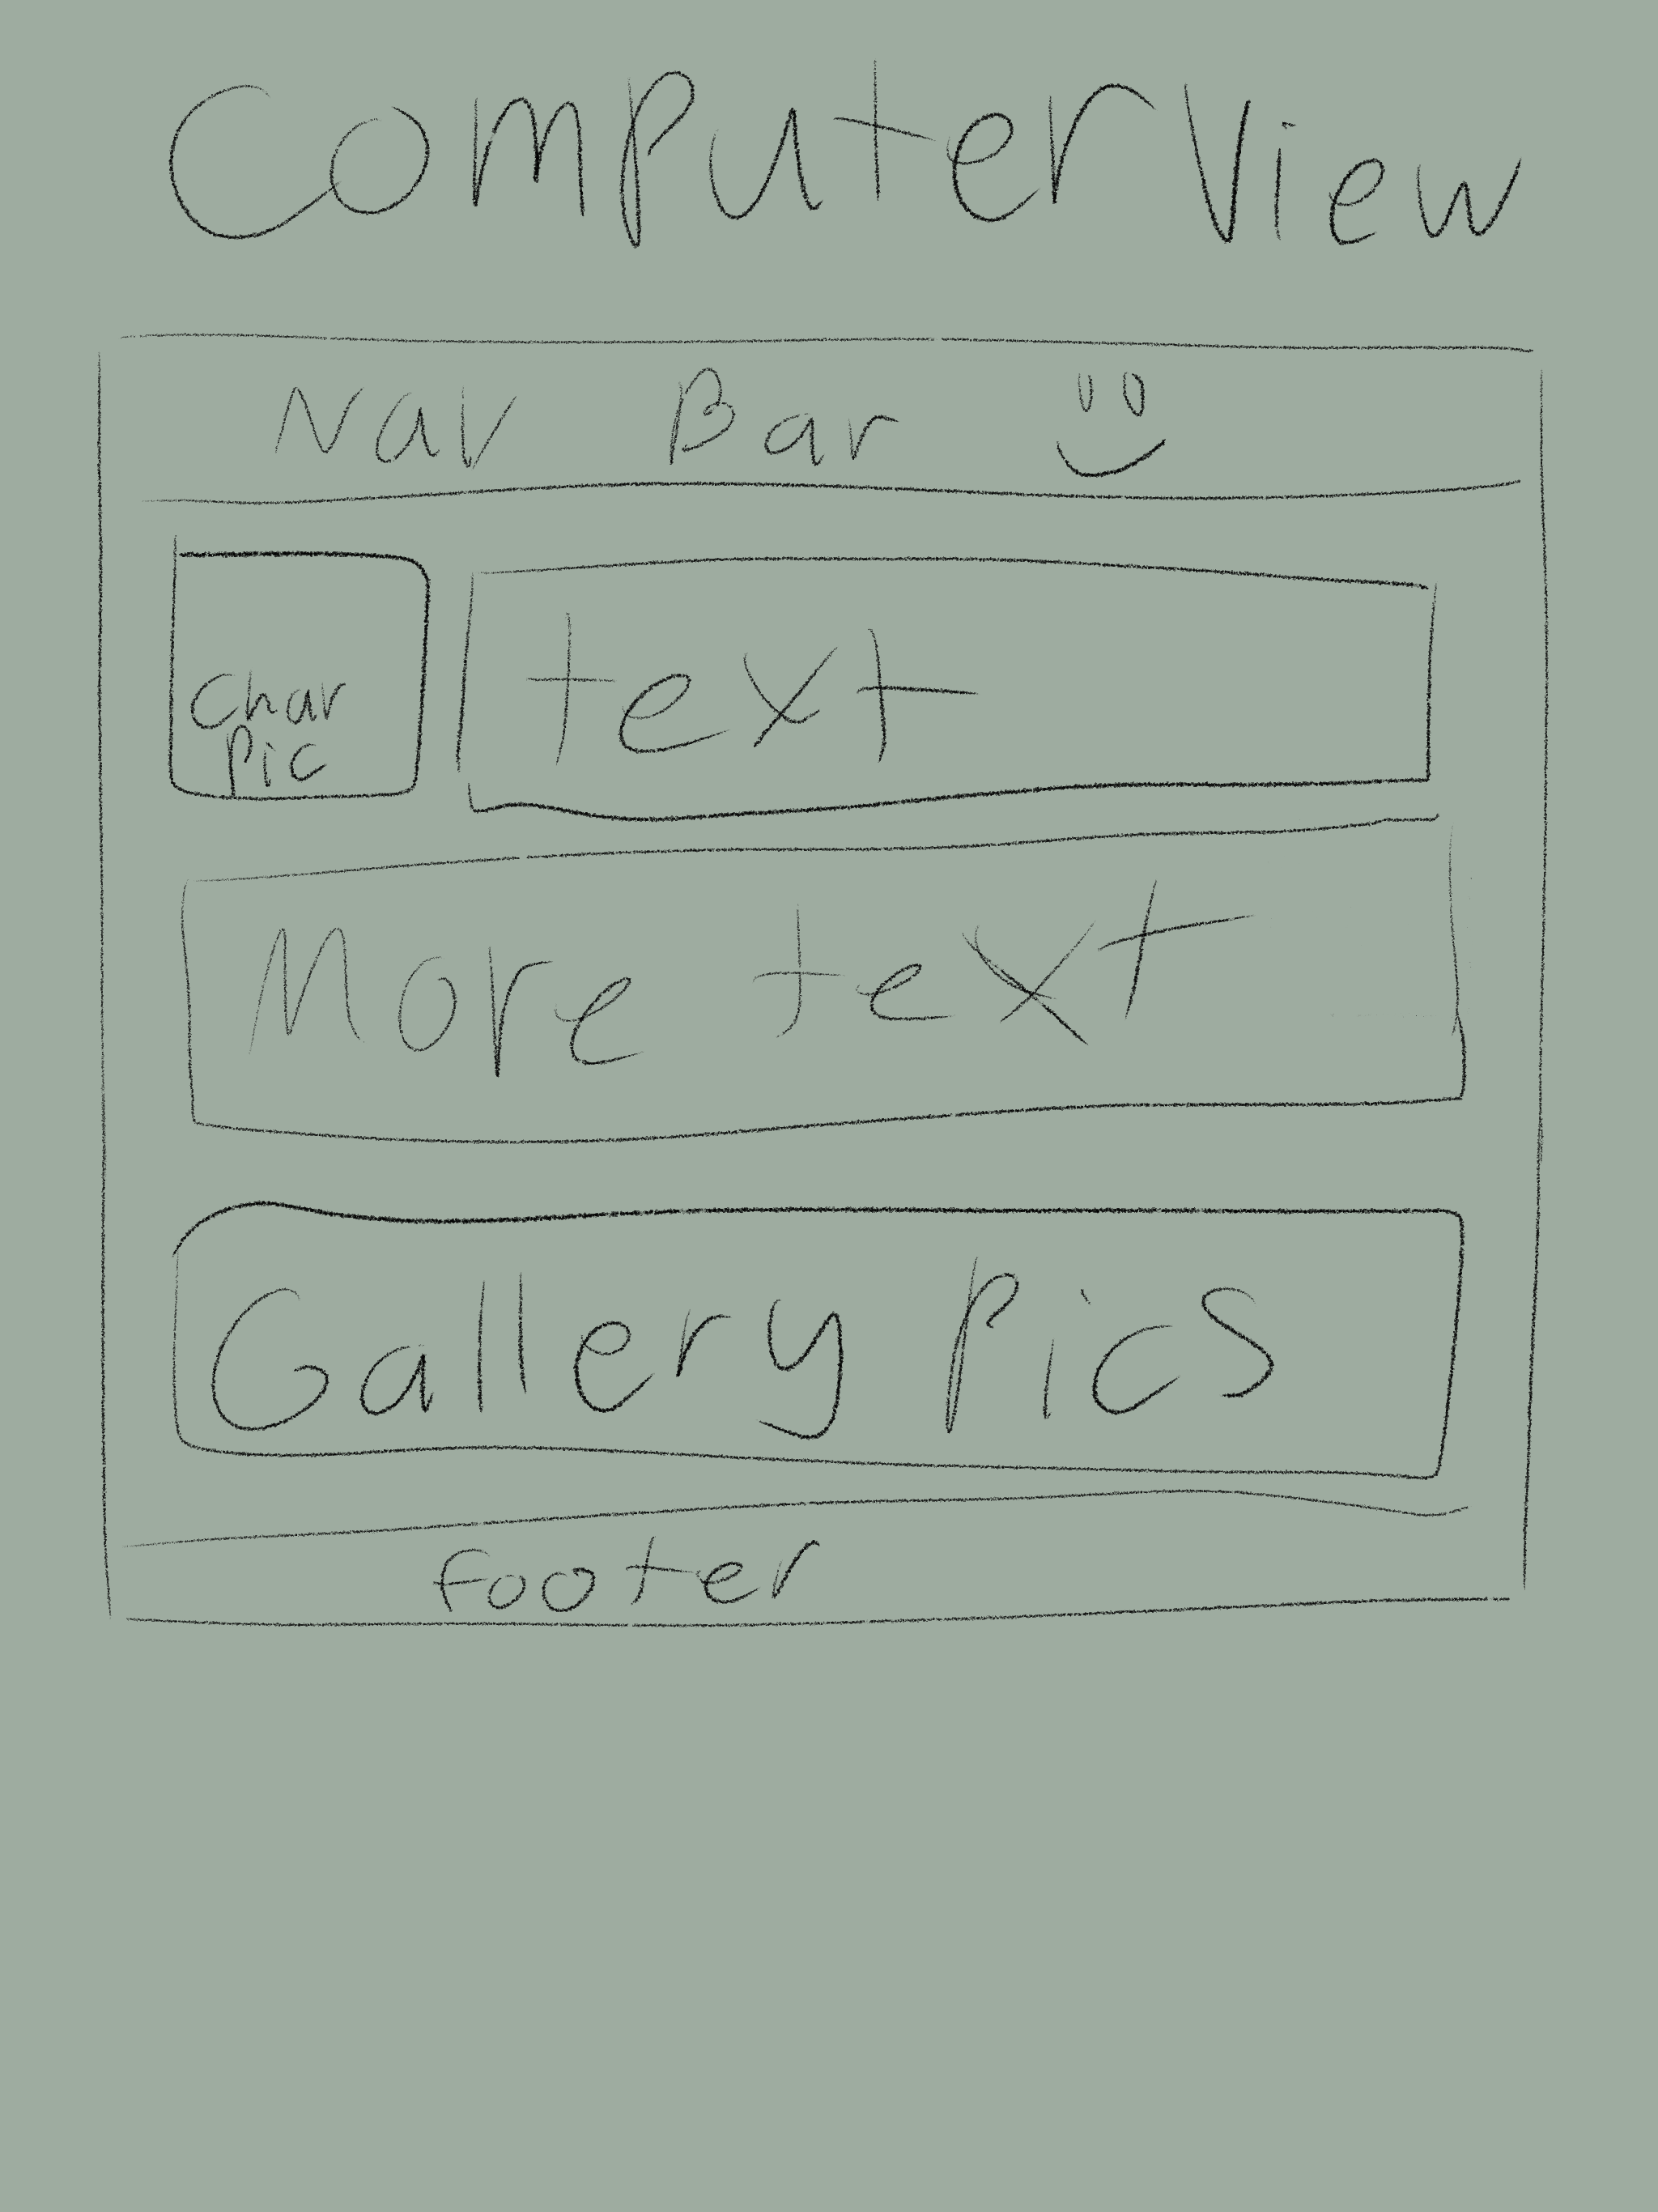 Computer View
Nav Bar
Char
Pic
text
More text
Gallery Pics
footer